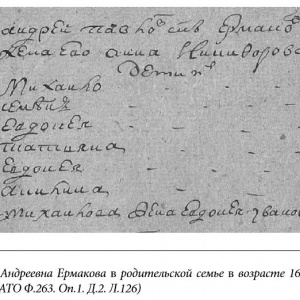 андрей павло свъ ермако
жена ево анна никифорова
Дети
Михайко
евдокея
татияна
евдокея
аникина
михайкова жена евдокея ивано
Андреевна Ермакова в родительской семье в возрасте 16
АТО Ф.263. Оп.1. Д.2. Л.126)